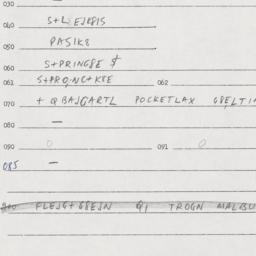 030
040 S+LEJEPIS
050 PASIK8
060 S+PRING8E $
061 S+PRO,NG+KEE 062
070 + Q BAJGARTL POCKETLAX
080 —
090 0 091 0
085 —
FLEJG+G8EJN Q1 TROGN MALBU